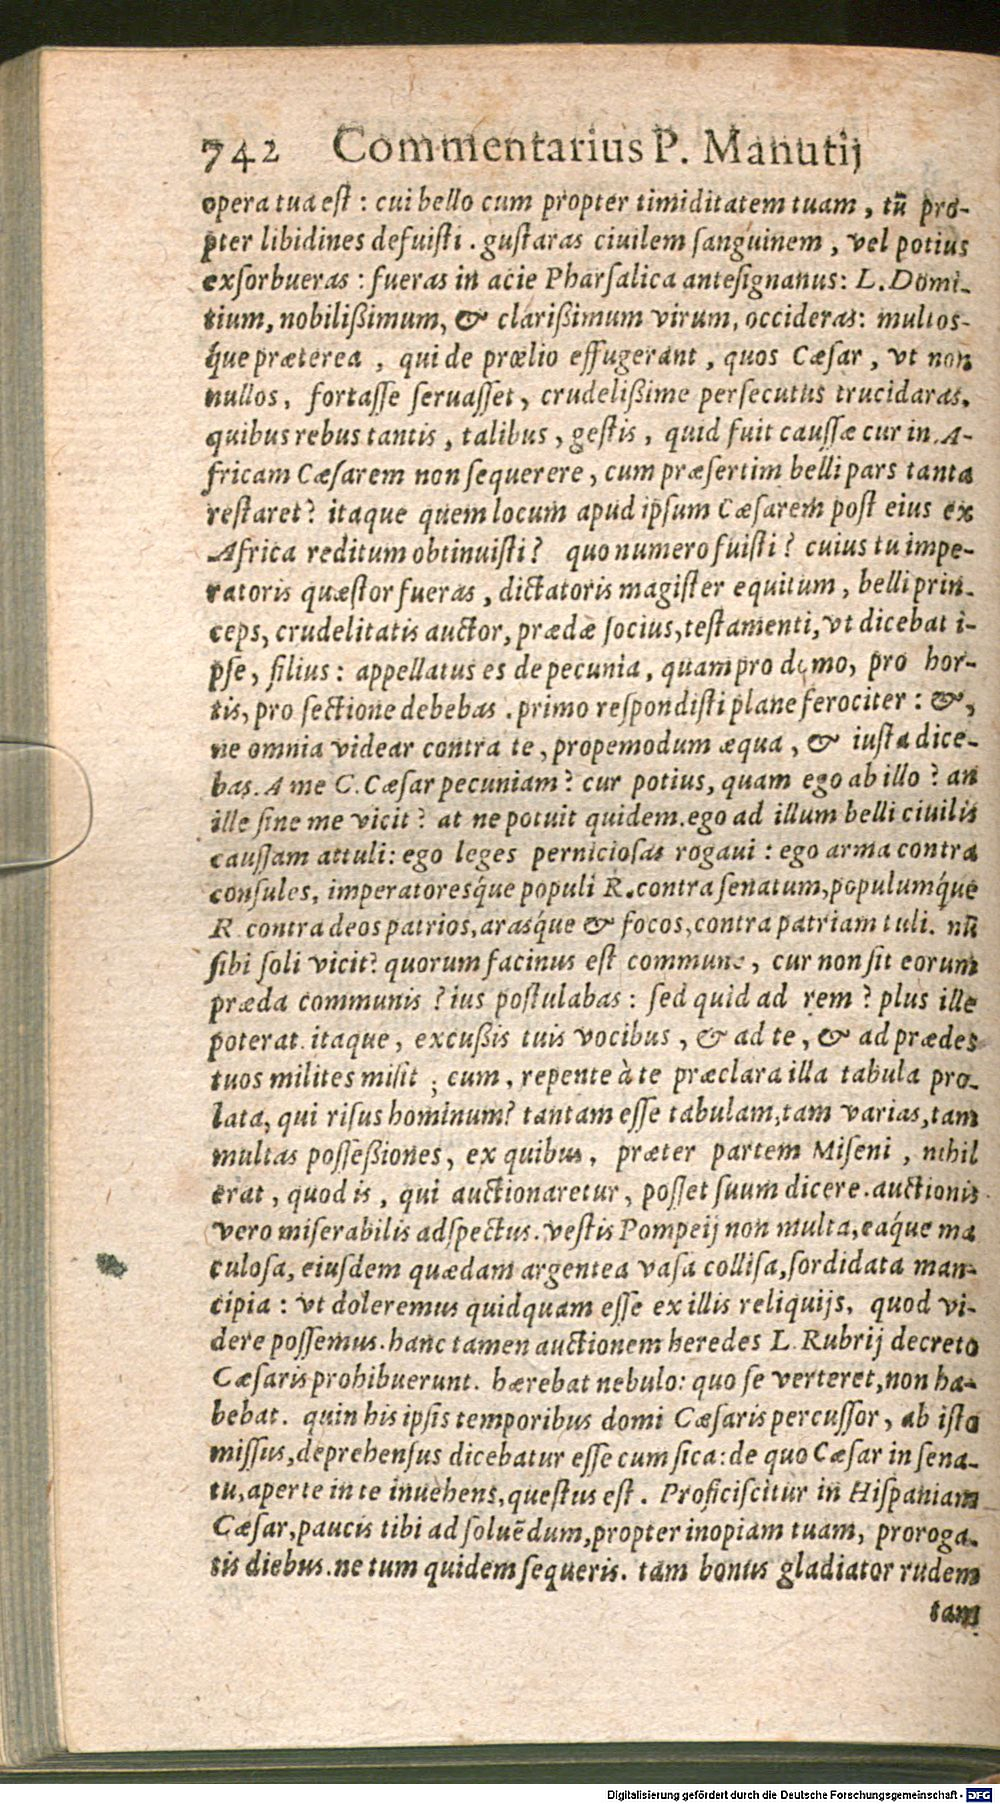 742 Commentarius P. Manutij
opera tua est : cui bello cum propter timiditatem tuam , tũ pro-
pter libidines defuisti . gustaras ciuilem sanguinem , vel potius
exsorbueras : fueras in acie Pharsalica antesignanus: L. Domi-
tium, nobilißimum, & clarißimum virum, occideras: multos-
q́ue præterea , qui de prœlio effugerant , quos Cæsar , vt non
nullos , fortasse seruasset , crudelißime persecutus trucidaras.
quibus rebus tantis , talibus , gestis , quid fuit caussæ cur in A-
fricam Cæsarem non sequerere , cum præsertim belli pars tanta
restaret? itaque quem locum apud ipsum Cæsarem post eius ex
Africa reditum obtinuisti? quo numero fuisti? cuius tu impe-
ratoris quæstor fueras , dictatoris magister equitum , belli prin-
ceps, crudelitatis auctor, prædæ socius, testamenti, vt dicebat i-
pse, filius : appellatus es de pecunia, quam pro domo, pro hor-
tis, pro sectione debebas . primo respondisti plane ferociter : &,
ne omnia videar contra te, propemodum æqua , & iusta dice-
bas. A me C. Cæsar pecuniam? cur potius, quam ego ab illo? an
ille sine me vicit? at ne potuit quidem. ego ad illum belli ciuilis
caussam attuli: ego leges perniciosas rogaui : ego arma contra
consules, imperatoresq́ue populi R. contra senatum, populumq́ue
R. contra deos patrios, arasq́ue & focos, contra patriam tuli. nũ
sibi soli vicit? quorum facinus est commune, cur non sit eorum
præda communis ? ius postulabas : sed quid ad rem? plus ille
poterat. itaque, excußis tuis vocibus , & ad te, & ad prædes
tuos milites misit ; cum, repente à te præclara illa tabula pro-
lata, qui risus hominum? tantam esse tabulam, tam varias, tam
multas posseßiones, ex quibus, præter partem Miseni , nihil
erat , quod is , qui auctionaretur, posset suum dicere. auctionis
vero miserabilis adspectus. vestis Pompeij non multa, eaq́ue ma
culosa, eiusdem quædam argentea vasa collisa, sordidata man-
cipia : vt doleremus quidquam esse ex illis reliquijs, quod vi-
dere possemus. hanc tamen auctionem heredes L. Rubrij decreto
Cæsaris prohibuerunt. hærebat nebulo: quo se verteret, non ha-
bebat. quin his ipsis temporibus domi Cæsaris percussor, ab isto
missus, deprehensus dicebatur esse cum sica: de quo Cæsar in sena-
tu, aperte in te inuehens, questus est. Proficiscitur in Hispaniam
Cæsar, paucis tibi ad soluẽdum, propter inopiam tuam, proroga-
tis diebus. ne tum quidem sequeris. tam bonus gladiator rudem
tam
Digitalisierung gefördert durch die Deutsche Forschungsgemeinschaft - DFG